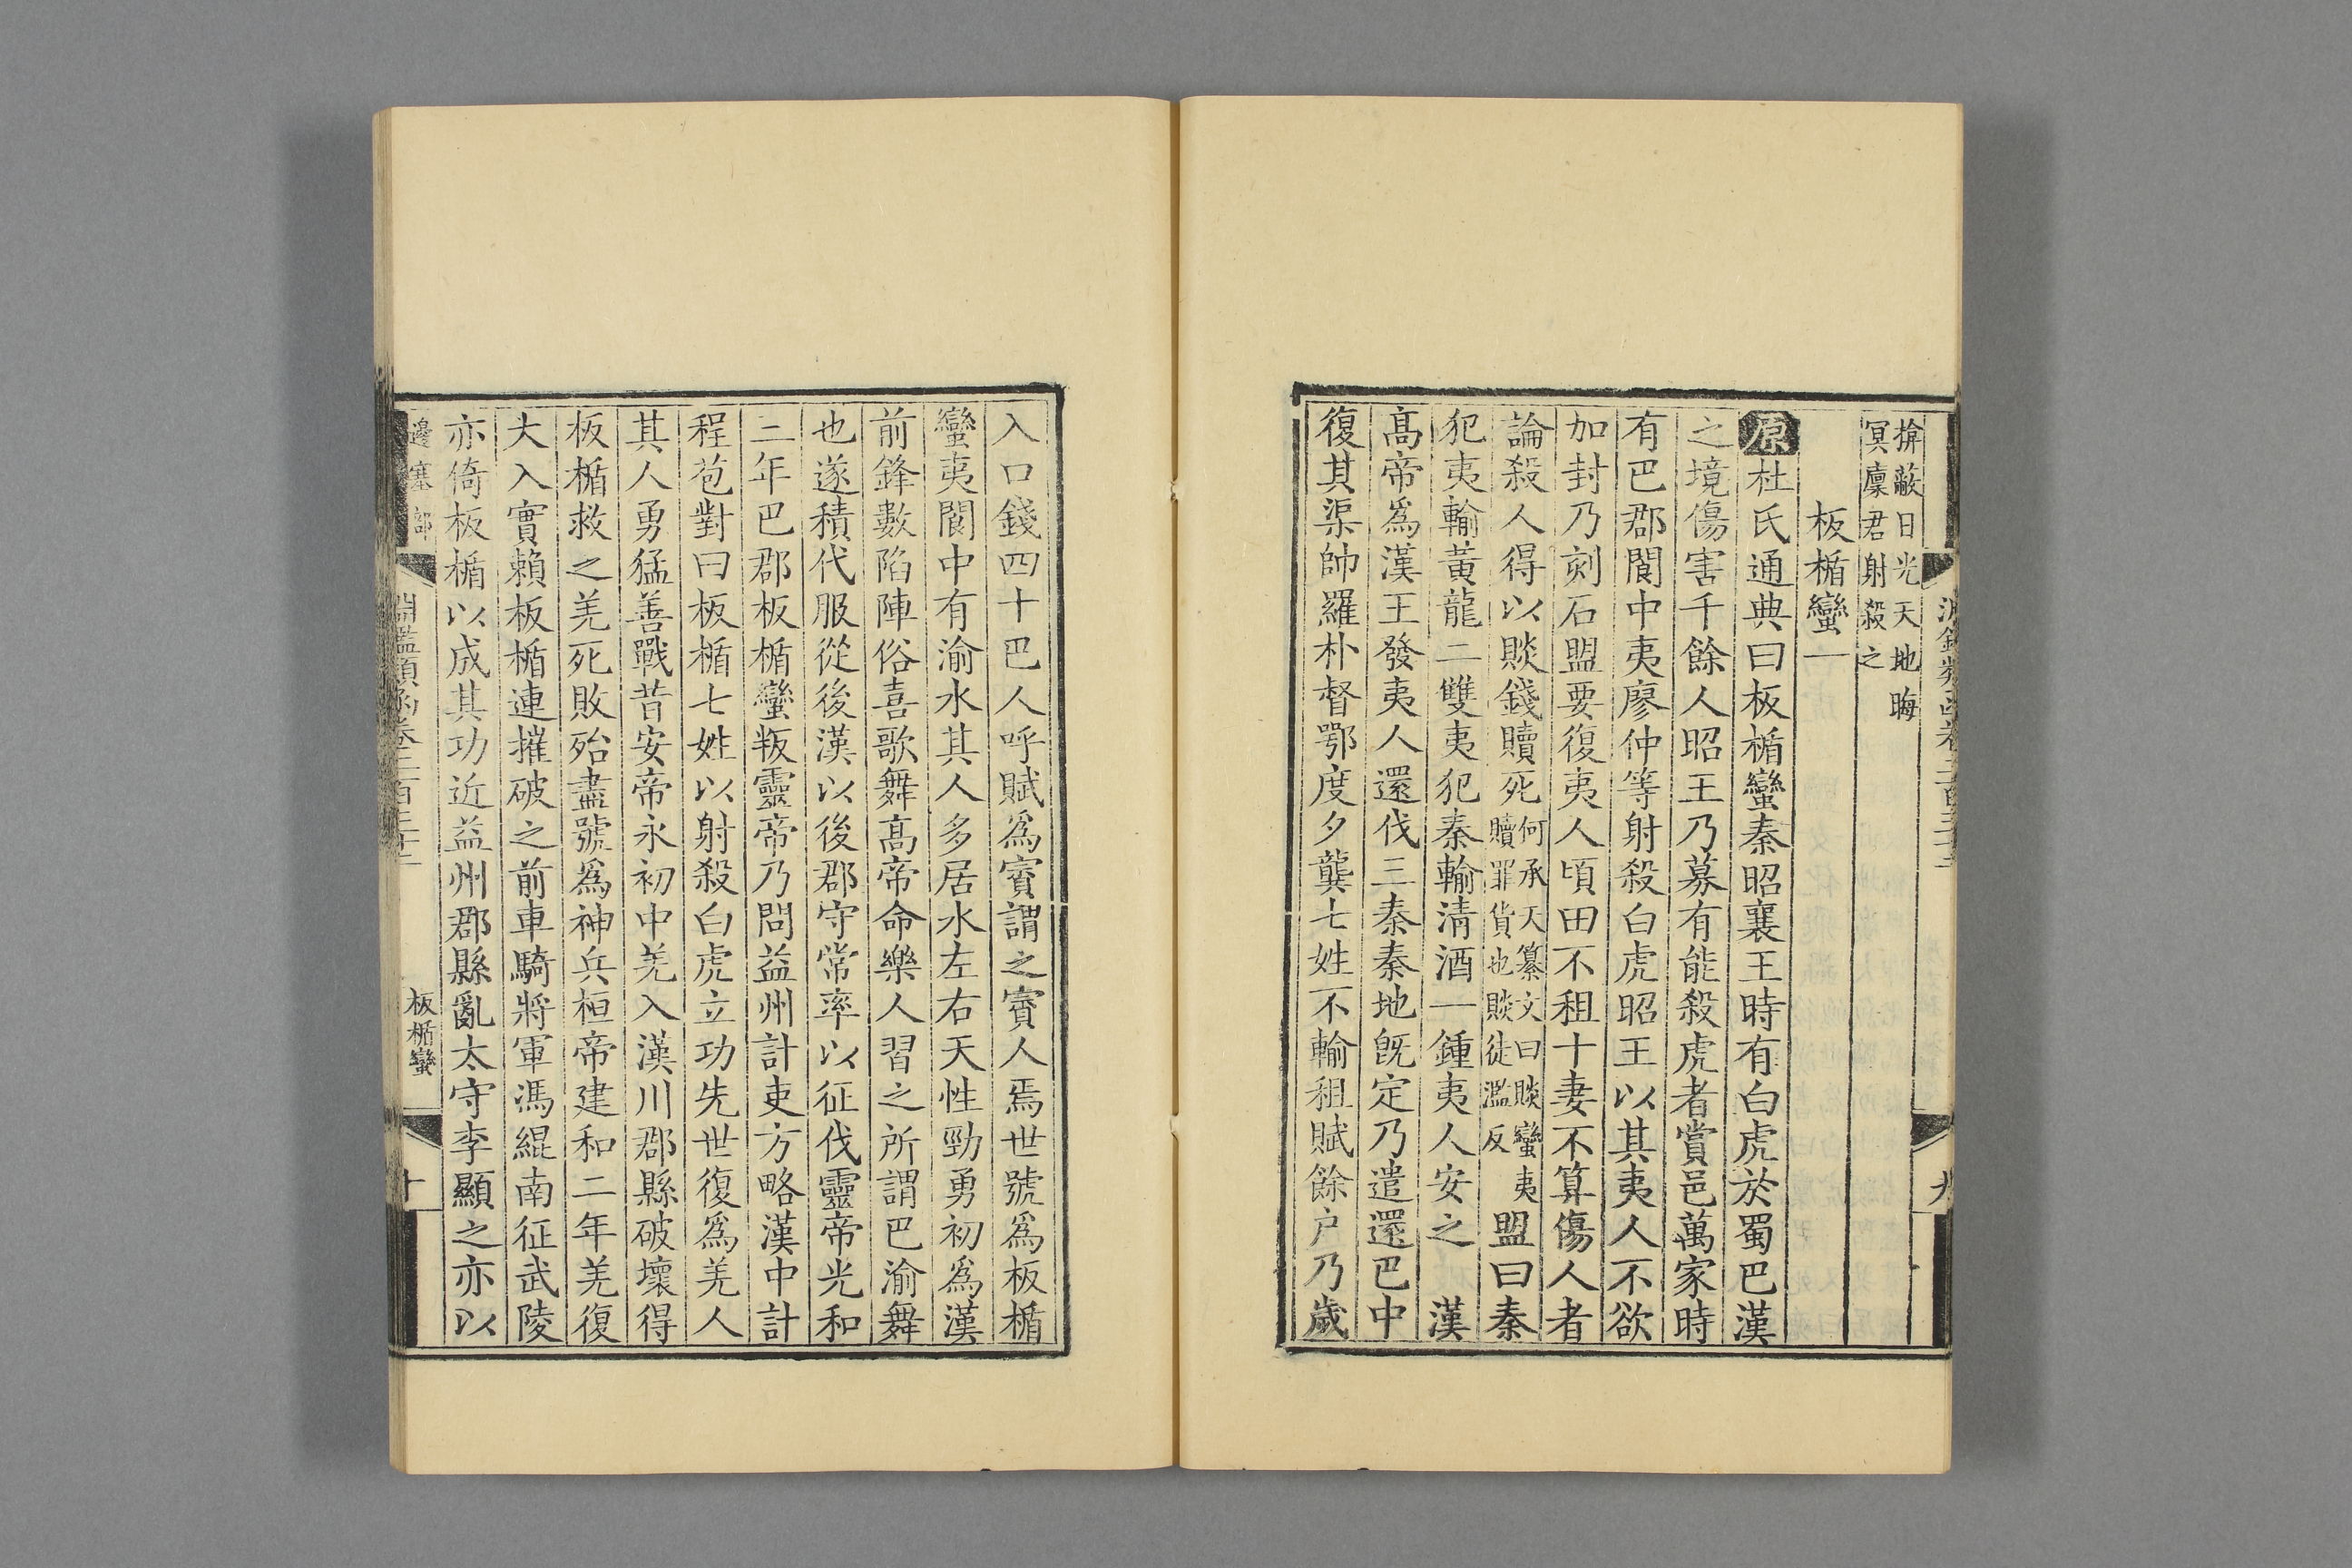 揜蔽日光天地晦
冥廪君射殺之
板楯蠻一
原杜氏通典曰板楯蠻秦昭襄王時有白虎於蜀巴漢
之境傷害千餘人昭王乃募有能殺虎者賞邑萬家時
有巴郡閬中夷廖仲等射殺白虎昭王以其夷人不欲
加封乃刻石盟要復夷人頃田不租十妻不算傷人者
論殺人得以賧錢贖死何承天纂文曰賧蠻夷贖罪貨也賧徒濫反盟曰秦
犯夷輸黄龍二雙夷犯秦輸清酒一鍾夷人安之 漢
髙帝爲漢王發夷人還伐三秦秦地旣定乃遣還巴中
復其渠帥羅朴督鄂度夕龔七姓不輸租賦餘户乃歲
入口錢四十巴人呼賦爲賨謂之賨人焉世號爲板楯
蠻夷閬中有渝水其人多居水左右天性勁勇初爲漢
前鋒數陷陣俗喜歌舞髙帝命樂人習之所謂巴渝舞
也遂積代服從後漢以後郡守常率以征伐靈帝光和
二年巴郡板楯蠻叛靈帝乃問益州計吏方略漢中計
程苞對曰板楯七姓以射殺白虎立功先世復爲羌人
其人勇猛善戰昔安帝永初中羌入漢川郡縣破壞得
板楯救之羌死敗殆盡號爲神兵桓帝建和二年羌復
大入實賴板楯連摧破之前車騎將軍馮緄南征武陵
亦倚板楯以成其功近益州郡縣亂太守李顒之亦以
邊塞部
淵鑑類函卷二百三十二
板楯蠻
十